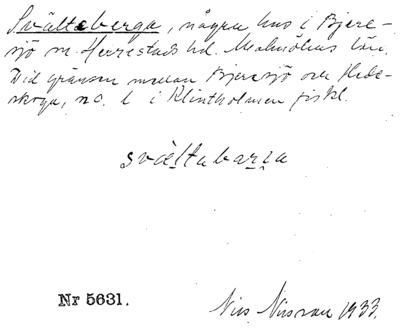 Svälteberga, några hus i Bjere-
sjö sn. Herrestads hd. Malmöhus län.
Vid gränsen mellan Bjeresjö och Hede-
skoga, no. l i Klintholmen fiskl.
svältabarja
Nr 5631.
Nils Nilsson 1933.